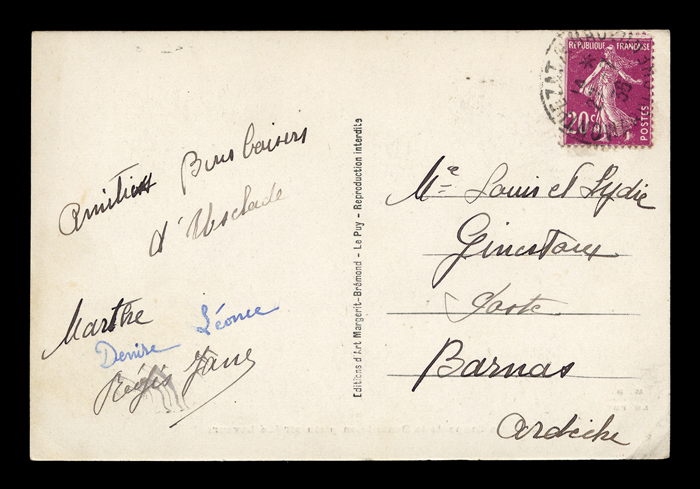 Amitiés Bons baisers
d'Usclade
Marthe
Denise Léonce
Régis Jane
Editions d'Art Margerit-Brémond - Le Puy - Reproduction interdite
REPUBLIQUE FRANÇAISE
20c
POSTES
Me Louis et Lydie
Ginestoux
Poste
Barnas
Ardèche